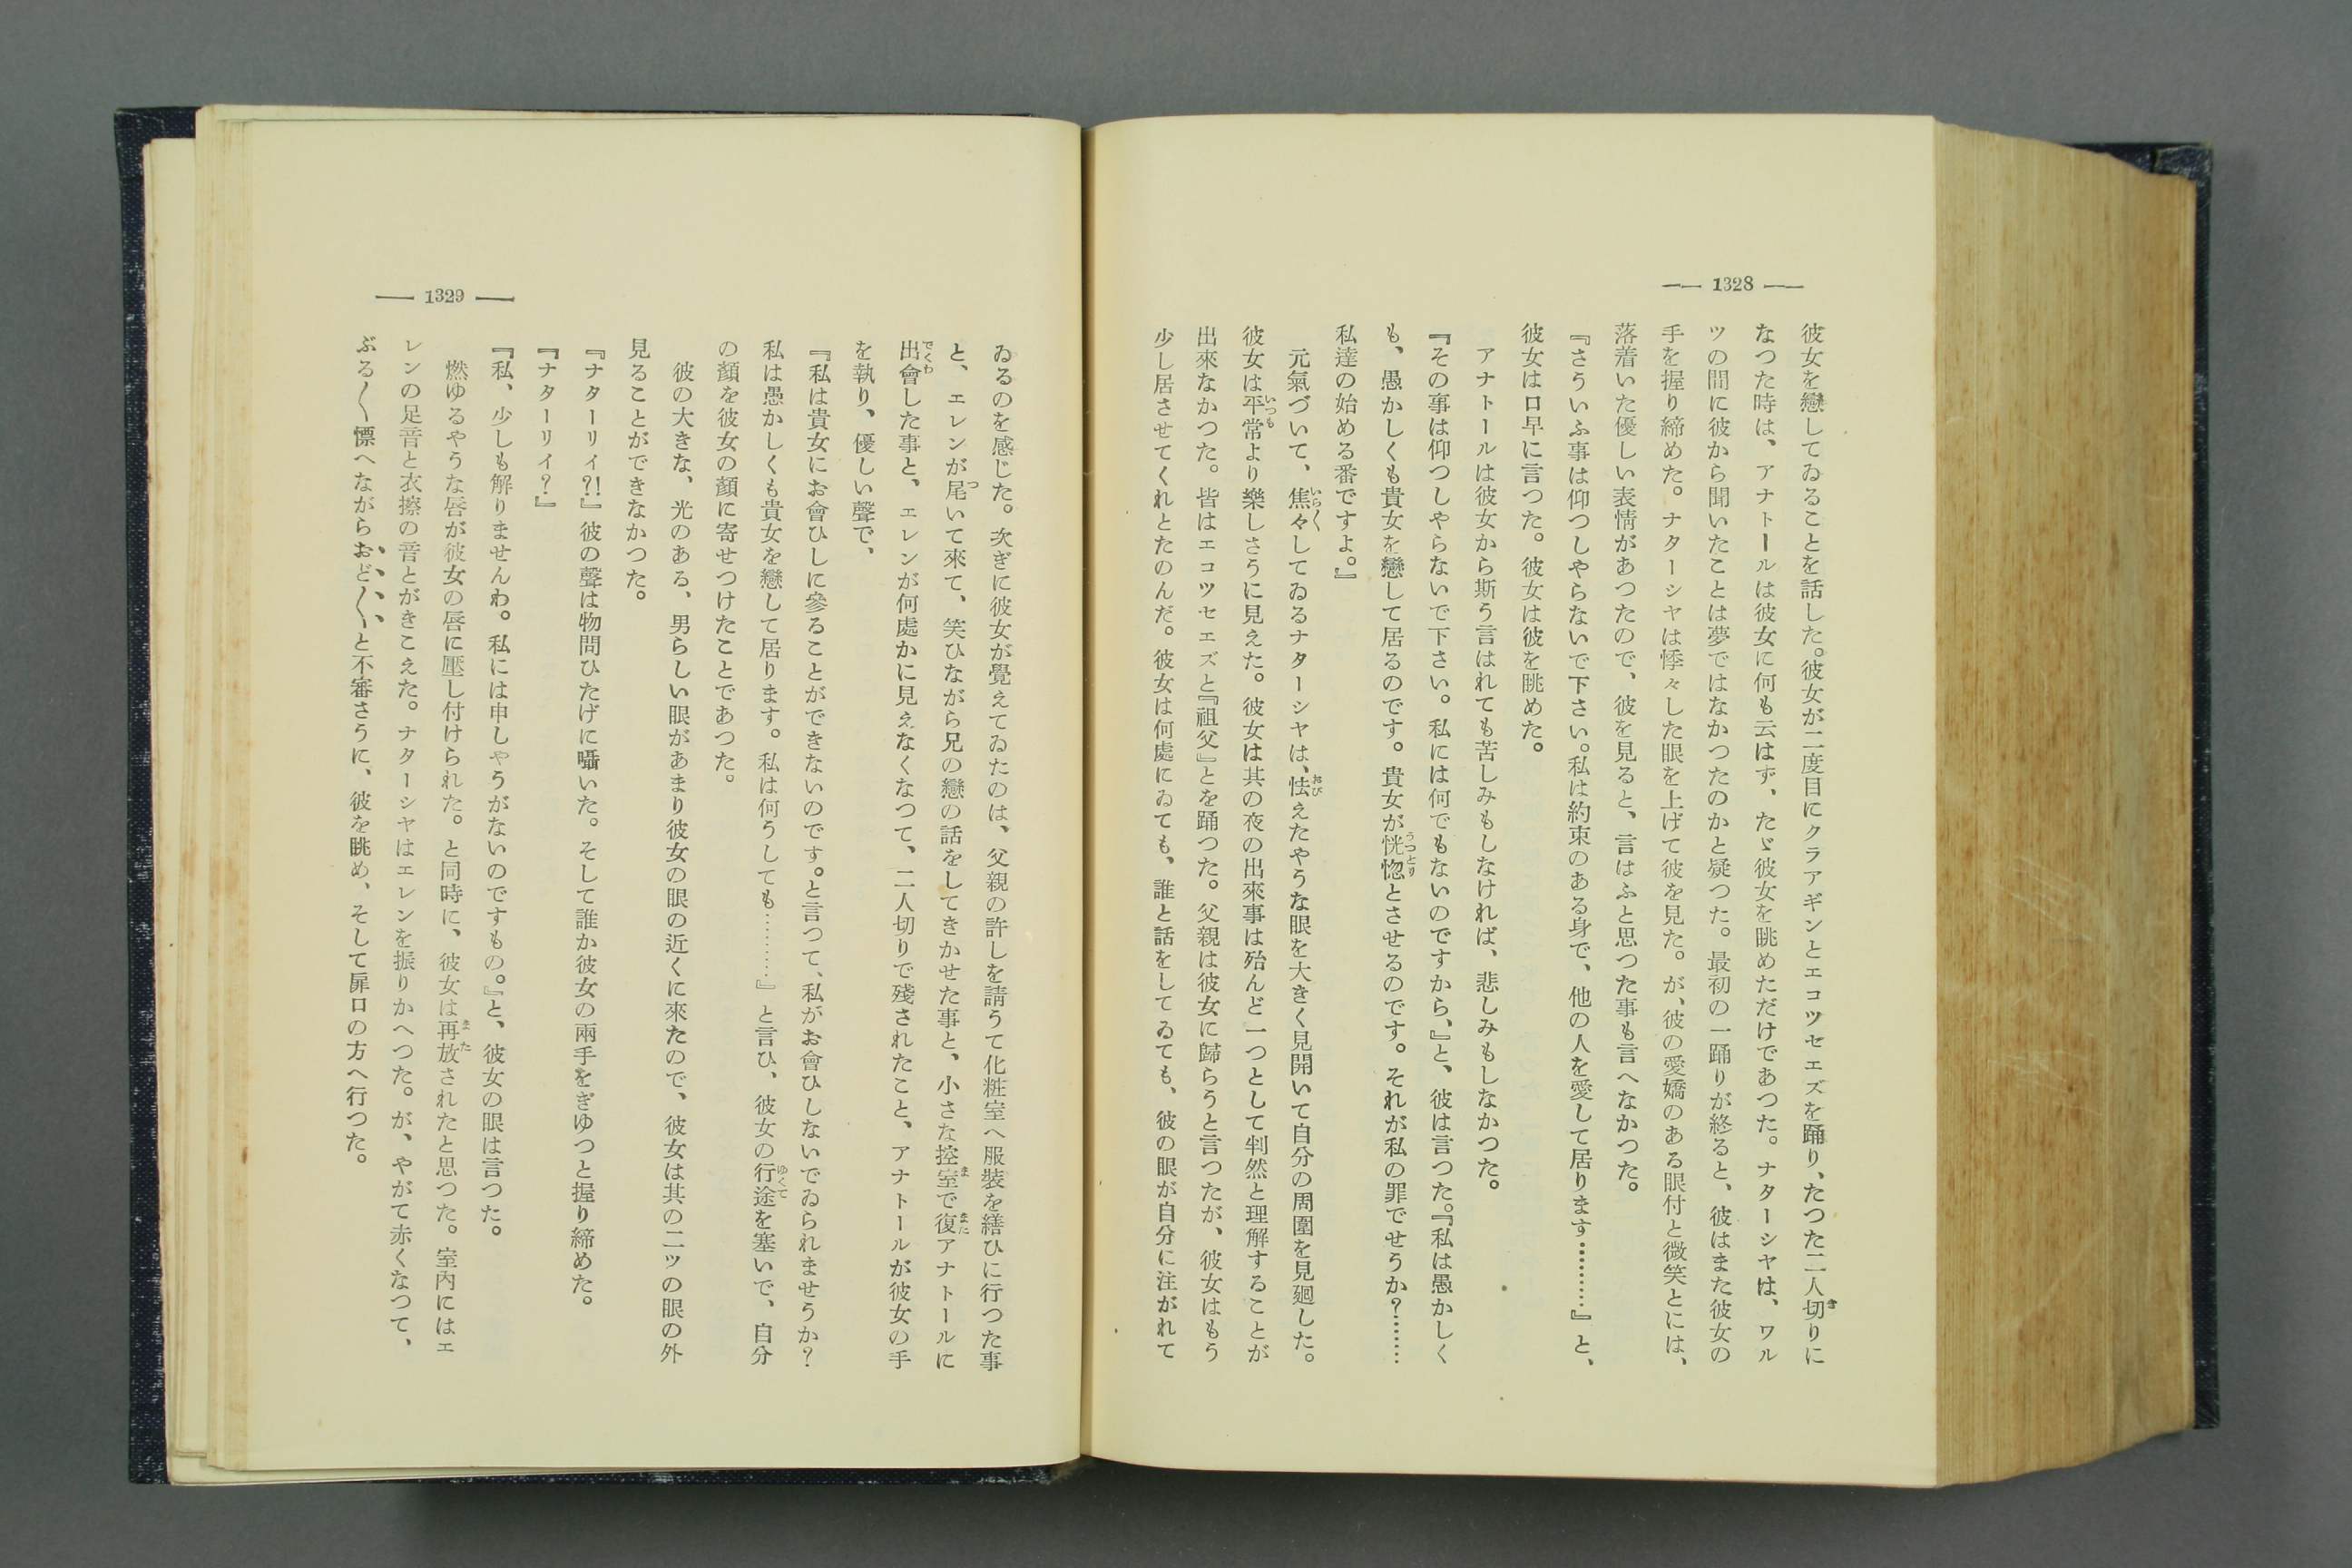 — 1328 —
彼女を戀してゐることを話した。彼女が二度目にクラアギンとエコツセエズを踊り、たつた二人切りに
なつた時は、アナトールは彼女に何も云はず、たゞ彼女を眺めただけであつた。ナターシヤは、ワル
ツの間に彼から聞いたことは夢ではなかつたのかと疑つた。最初の一踊りが終ると、彼はまた彼女の
手を握り締めた。ナターシヤは悸々した眼を上げて彼を見た。が、彼の愛嬌のある眼付と微笑とには、
落着いた優しい表情があつたので、彼を見ると、言はふと思つた事も言へなかつた。
『さういふ事は仰つしやらないで下さい。私は約束のある身で、他の人を愛して居ります………』と、
彼女は口早に言つた。彼女は彼を眺めた。
アナトールは彼女から斯う言はれても苦しみもしなければ、悲しみもしなかつた。
『その事は仰つしやらないで下さい。私には何でもないのですから、』と、彼は言つた。『私は愚かしく
も、愚かしくも貴女を戀して居るのです。貴女が恍惚とさせるのです。それが私の罪でせうか？………
私達の始める番ですよ。』
元氣づいて、焦々してゐるナターシヤは、怯えたやうな眼を大きく見開いて自分の周圍を見廻した。
彼女は平常より樂しさうに見えた。彼女は其の夜の出來事は殆んど一つとして判然と理解することが
出來なかつた。皆はエコツセエズと『祖父』とを踊つた。父親は彼女に歸らうと言つたが、彼女はもう
少し居させてくれとたのんだ。彼女は何處にゐても、誰と話をしてゐても、彼の眼が自分に注がれて
— 1329 —
ゐるのを感じた。次ぎに彼女が覺えてゐたのは、父親の許しを請うて化粧室へ服裝を繕ひに行つた事
と、エレンが尾いて來て、笑ひながら兄の戀の話をしてきかせた事と、小さな控室で復アナトールに
出會した事と、エレンが何處かに見えなくなつて、二人切りで殘されたこと、アナトールが彼女の手
を執り、優しい聲で、
『私は貴女にお會ひしに參ることができないのです。と言つて、私がお會ひしないでゐられませうか？
私は愚かしくも貴女を戀して居ります。私は何うしても………』と言ひ、彼女の行途を塞いで、自分
の顏を彼女の顏に寄せつけたことであつた。
彼の大きな、光のある、男らしい眼があまり彼女の眼の近くに來たので、彼女は其の二ツの眼の外
見ることができなかつた。
『ナターリイ?!』彼の聲は物問ひたげに囁いた。そして誰か彼女の兩手をぎゆつと握り締めた。
『ナターリイ？』
『私、少しも解りませんわ。私には申しやうがないのですもの。』と、彼女の眼は言つた。
燃ゆるやうな唇が彼女の唇に壓し付けられた。と同時に、彼女は再放されたと思つた。室內にはエ
レンの足音と衣擦の音とがきこえた。ナターシヤはエレンを振りかへつた。が、やがて赤くなつて、
ぶる〱慄へながらおど〱と不審さうに、彼を眺め、そして扉口の方へ行つた。